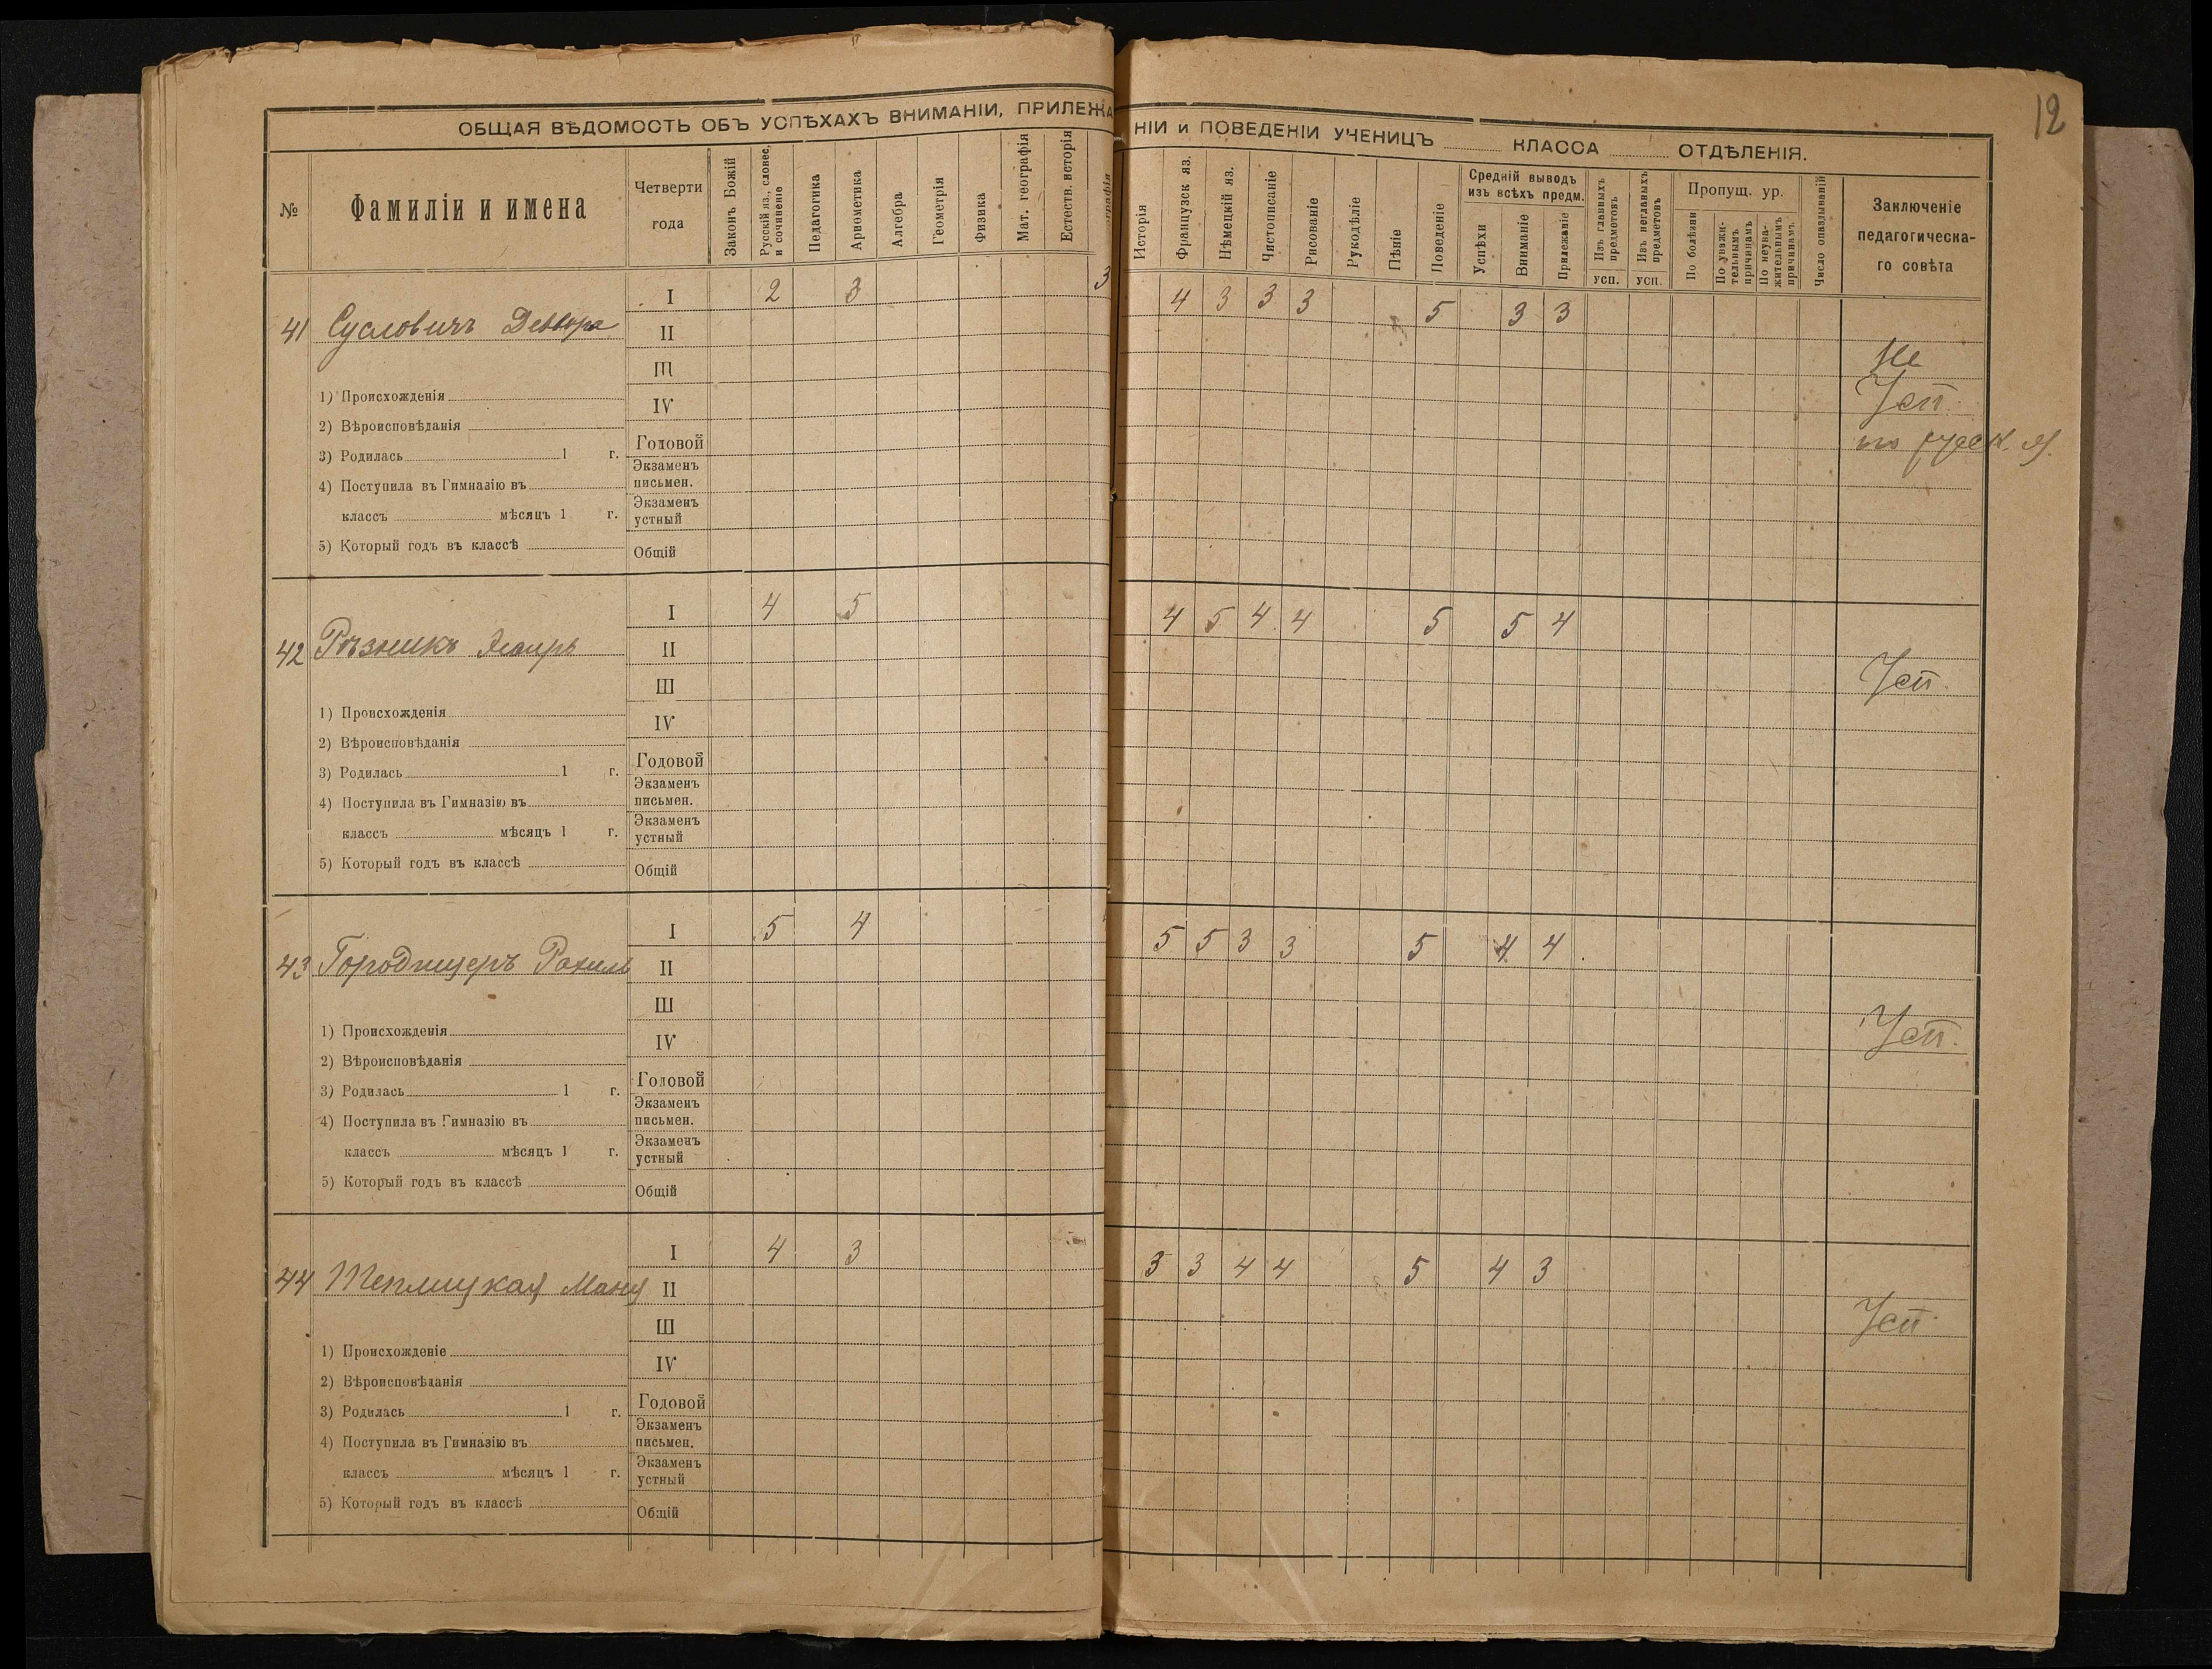 12
ОБЩАЯ ВѢДОМОСТЬ ОБЪ УСПѢХАХЪ ВНИМАНІИ, ПРИЛЕЖАНІИ и ПОВЕДЕНІИ УЧЕНИЦЪ КЛАССА ОТДѢЛЕНІЯ.
№
Фамиліи и имена
Четверти года
Законъ Божій
Русскій яз., словес. и сочинение
Педагогика
Ариѳметика
Алгебра
Геометрія
Физика
Мат. географія
Естеств. исторія
Исторія
Французск яз.
Нѣмецкій яз.
Чистописаніе
Рисованіе
Рукодѣліе
Пѣніе
Поведеніе
Средній выводъ изъ всѣхъ предм.
Успѣхи
Вниманіе
Прилежаніе
Изъ главныхъ предметовъ
усп.
Изъ неглавныхъ предметовъ
усп.
Пропущ. ур.
По болѣзни
По уважительнымъ причинамъ
По неуважительнымъ причинамъ
Число опазываній
Заключеніе педагогическаго совѣта
41 Сусловичъ Девора
I 2 3 3 4 3 3 3 5 3 3
II
III
IV
Годовой
Экзаменъ письмен.
Экзаменъ устный
Общій
1) Происхожденія
2) Вѣроисповѣданія
3) Родилась 1 г.
4) Поступила въ Гимназію въ
классъ мѣсяцъ 1 г.
5) Который годъ въ классѣ
Не
Усп.
по русск. я.
42 Рѣзникъ
I 4 5 4 5 4 4 5 5 4
II
III
IV
Годовой
Экзаменъ письмен.
Экзаменъ устный
Общій
1) Происхожденія
2) Вѣроисповѣданія
3) Родилась 1 г.
4) Поступила въ Гимназію въ
классъ мѣсяцъ 1 г.
5) Который годъ въ классѣ
Усп.
43 Городищеръ Рахиль
I 5 4 5 5 3 3 5 4 4
II
III
IV
Годовой
Экзаменъ письмен.
Экзаменъ устный
Общій
1) Происхожденія
2) Вѣроисповѣданія
3) Родилась 1 г.
4) Поступила въ Гимназію въ
классъ мѣсяцъ 1 г.
5) Который годъ въ классѣ
Усп.
44 Теплицкая Маня
I 4 3 3 3 4 4 5 4 3
II
III
IV
Годовой
Экзаменъ письмен.
Экзаменъ устный
Общій
1) Происхожденіе
2) Вѣроисповѣданія
3) Родилась 1 г.
4) Поступила въ Гимназію въ
классъ мѣсяцъ 1 г.
5) Который годъ въ классѣ
Усп.